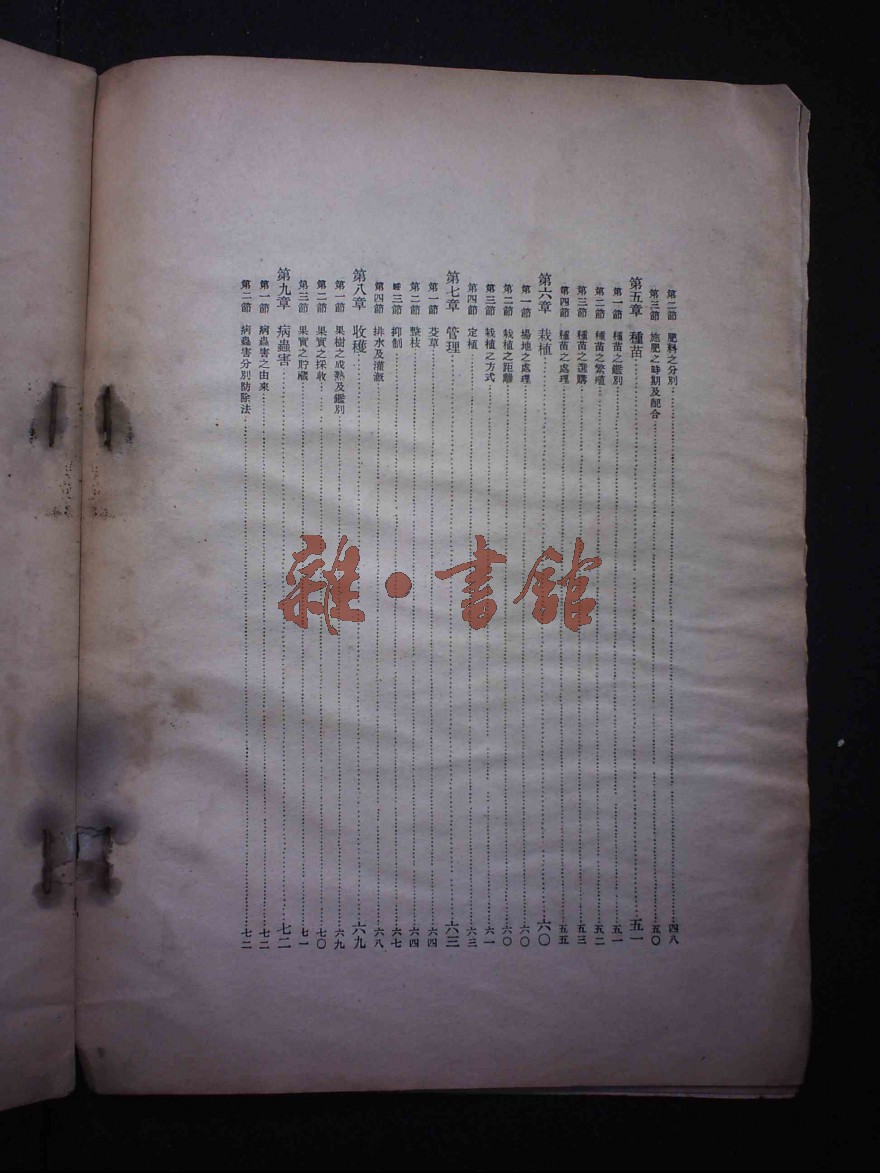 第二節 肥料之分別 四八
第三節 施肥之時期及配合 五〇
第五章 種苗 五一
第一節 種苗之鑑別 五一
第二節 種苗之繁殖 五二
第三節 種苗之選購 五三
第四節 種苗之處理 五五
第六章 栽植 六〇
第一節 場地之處理 六〇
第二節 栽植之距離 六〇
第三節 栽植之方式 六一
第四節 定植 六三
第七章 管理 六三
第一節 芟草 六四
第二節 整枝 六四
三節 抑制 六七
第四節 排水及灌漑 六八
第八章 收穫 六九
第一節 果樹之成熟及鑑別 六九
第二節 果實之採收 七〇
第三節 果實之貯藏 七一
第九章 病蟲害 七二
第一節 病蟲害之由來 七二
第二節 病蟲害分別防除法 七二
雜·書館